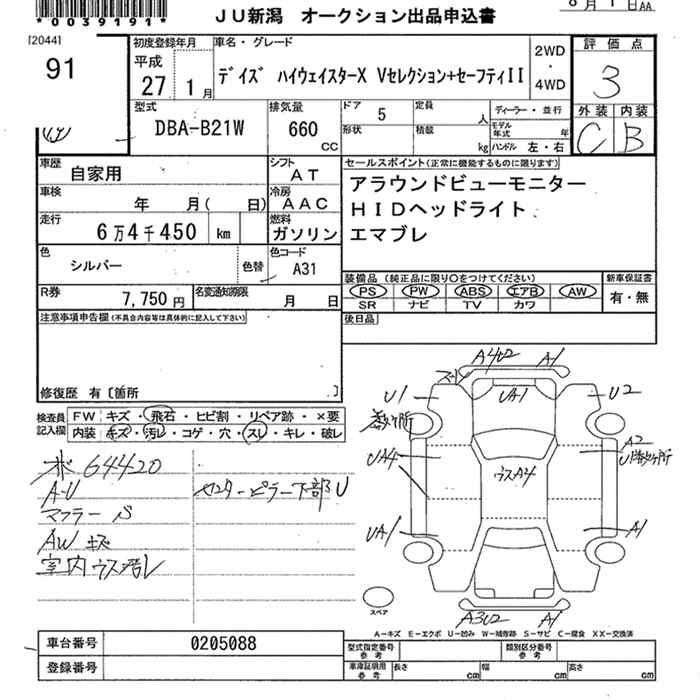 *0039191*
JU新潟 オークション出品申込書
8月1日AA
[2044]
91
初度登録年月
平成
27 1月
車名・グレード
デイズ ハイウェイスターX Vセレクション+セーフティII
2WD
・
4WD
評価点
3
外装 内装
C B
型式
DBA-B21W
排気量
660
CC
ドア 5
形状
定員 人
積載 kg
ディーラー・並行
モデル年式 年
ハンドル 左・右
車歴 自家用
シフト AT
車検 年 月( 日)
冷房 AAC
走行 6万4千450 km
燃料 ガソリン
色 シルバー
色替
色コード A31
R券 7,750円
名変通知期限 月 日
セールスポイント(正常に機能するものに限ります)
アラウンドビューモニター
HIDヘッドライト
エマブレ
装備品 (純正品に限り○をつけてください)
PS PW ABS エアB AW
SR ナビ TV カワ
新車保証書
有・無
後日品
注意事項申告欄(不具合内容等は具体的に記入して下さい)
修復歴 有〔箇所 .〕
検査員記入欄
FW キズ・飛石・ヒビ割・リペア跡・×要
内装 キズ・汚レ・コゲ・穴・スレ・キレ・破レ
64420
A-U
マフラー S
AW キズ
室内ウス汚レ
センターピラー下部U
A4U2 A-1
U1
UA1
U2
UA4
ウスA4
A2
UA1
A1
A3U2 A1
スペア
A-キズ E-エクボ U-凹み W-補修跡 S-サビ C-腐食 XX-交換済
車台番号 0205088
登録番号
型式指定番号 参考
類別区分番号 参考
車庫証明用 参考
長さ cm
幅 cm
高さ cm